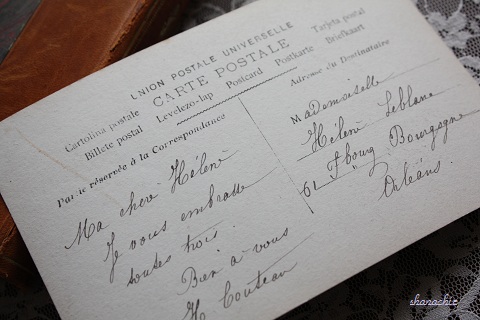 UNION POSTALE UNIVERSELLE
CARTE POSTALE
Cartolina postale Tarjeta postal
Billete postal Levelezo-lap Postcard Postkarte Briefkaart
Partie réservée à la Correspondance
Adresse du Destinataire
Ma chère Hélène
Je vous embrasse
toutes trois.
Bien à vous
H Couteau
Mademoiselle
Hélène Leblanc
61 Fbourg Bourgogne
Orléans.
shanachie